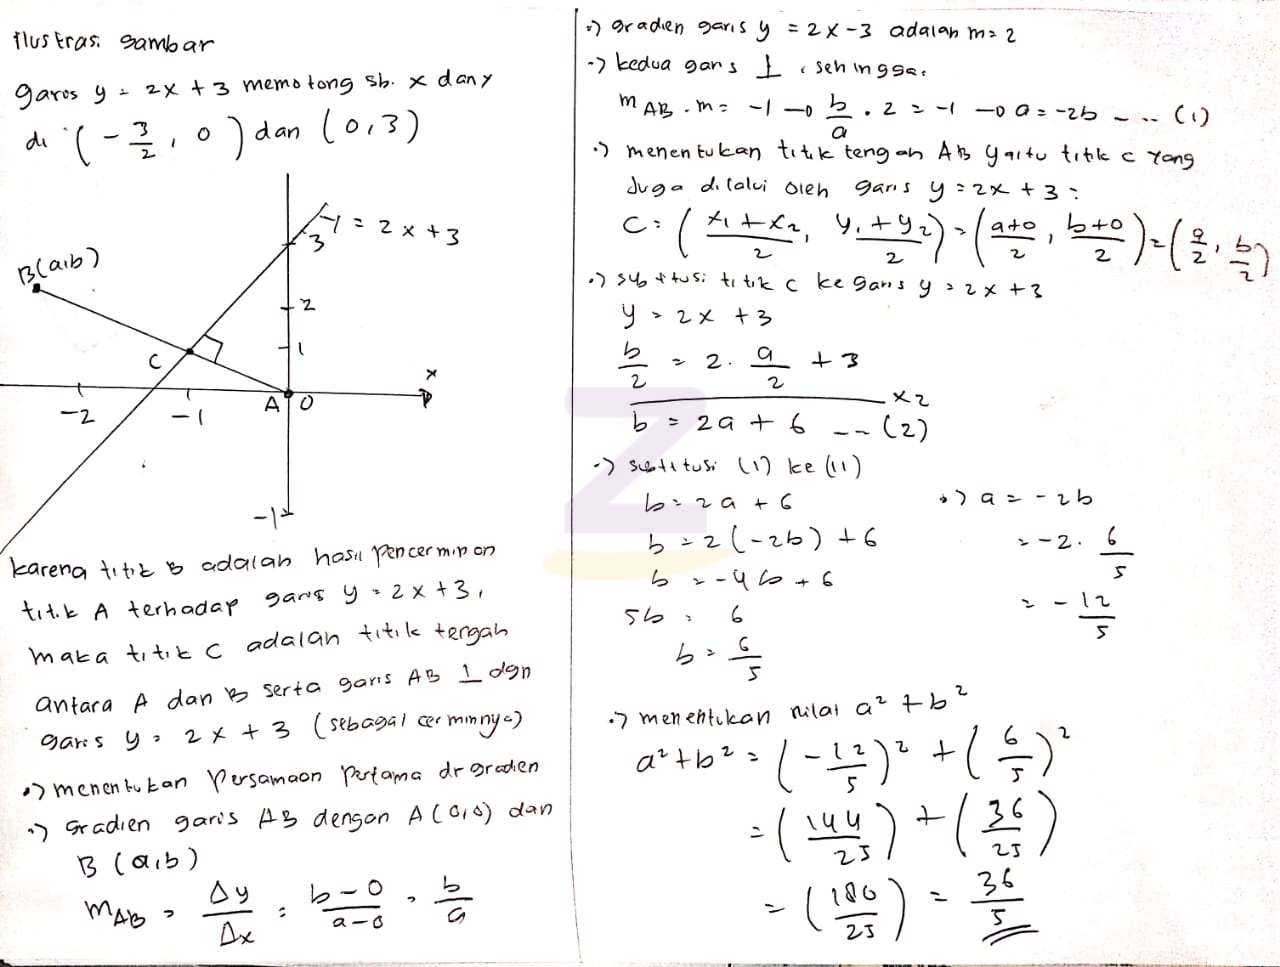 Ilustrasi gambar
garis y = 2x + 3 memotong sb. x dan y
di (-3/2, 0) dan (0,3)
y = 2x + 3
3
B(a,b)
2
1
C
x
-2
-1
A
O
-1
karena titik B adalah hasil pencerminan
titik A terhadap garis y = 2x + 3,
maka titik C adalah titik tengah
antara A dan B serta garis AB ⊥ dgn
garis y = 2x + 3 (sebagai cerminnya)
•) menentukan persamaan pertama dr gradien
•) Gradien garis AB dengan A(0,0) dan
B(a,b)
mAB = Δy/Δx = b-0/a-0 = b/a
•) gradien garis y = 2x - 3 adalah m = 2
•) kedua garis ⊥, sehingga:
mAB . m = -1 → b/a . 2 = -1 → a = -2b ---- (1)
•) menentukan titik tengah AB yaitu titik C yang
Juga dilalui oleh garis y = 2x + 3 :
C = (x1 + x2/2, y1 + y2/2) = (a+0/2, b+0/2) = (a/2, b/2)
•) subtitusi titik C ke garis y = 2x + 3
y = 2x + 3
b/2 = 2. a/2 + 3
x2
b = 2a + 6 --- (2)
•) subtitusi (1) ke (11)
b = 2a + 6
b = 2(-2b) + 6
b = -4b + 6
5b = 6
b = 6/5
•) a = -2b
= -2. 6/5
= -12/5
•) menentukan nilai a² + b²
a² + b² = (-12/5)² + (6/5)²
= (144/25) + (36/25)
= (180/25) = 36/5
Z